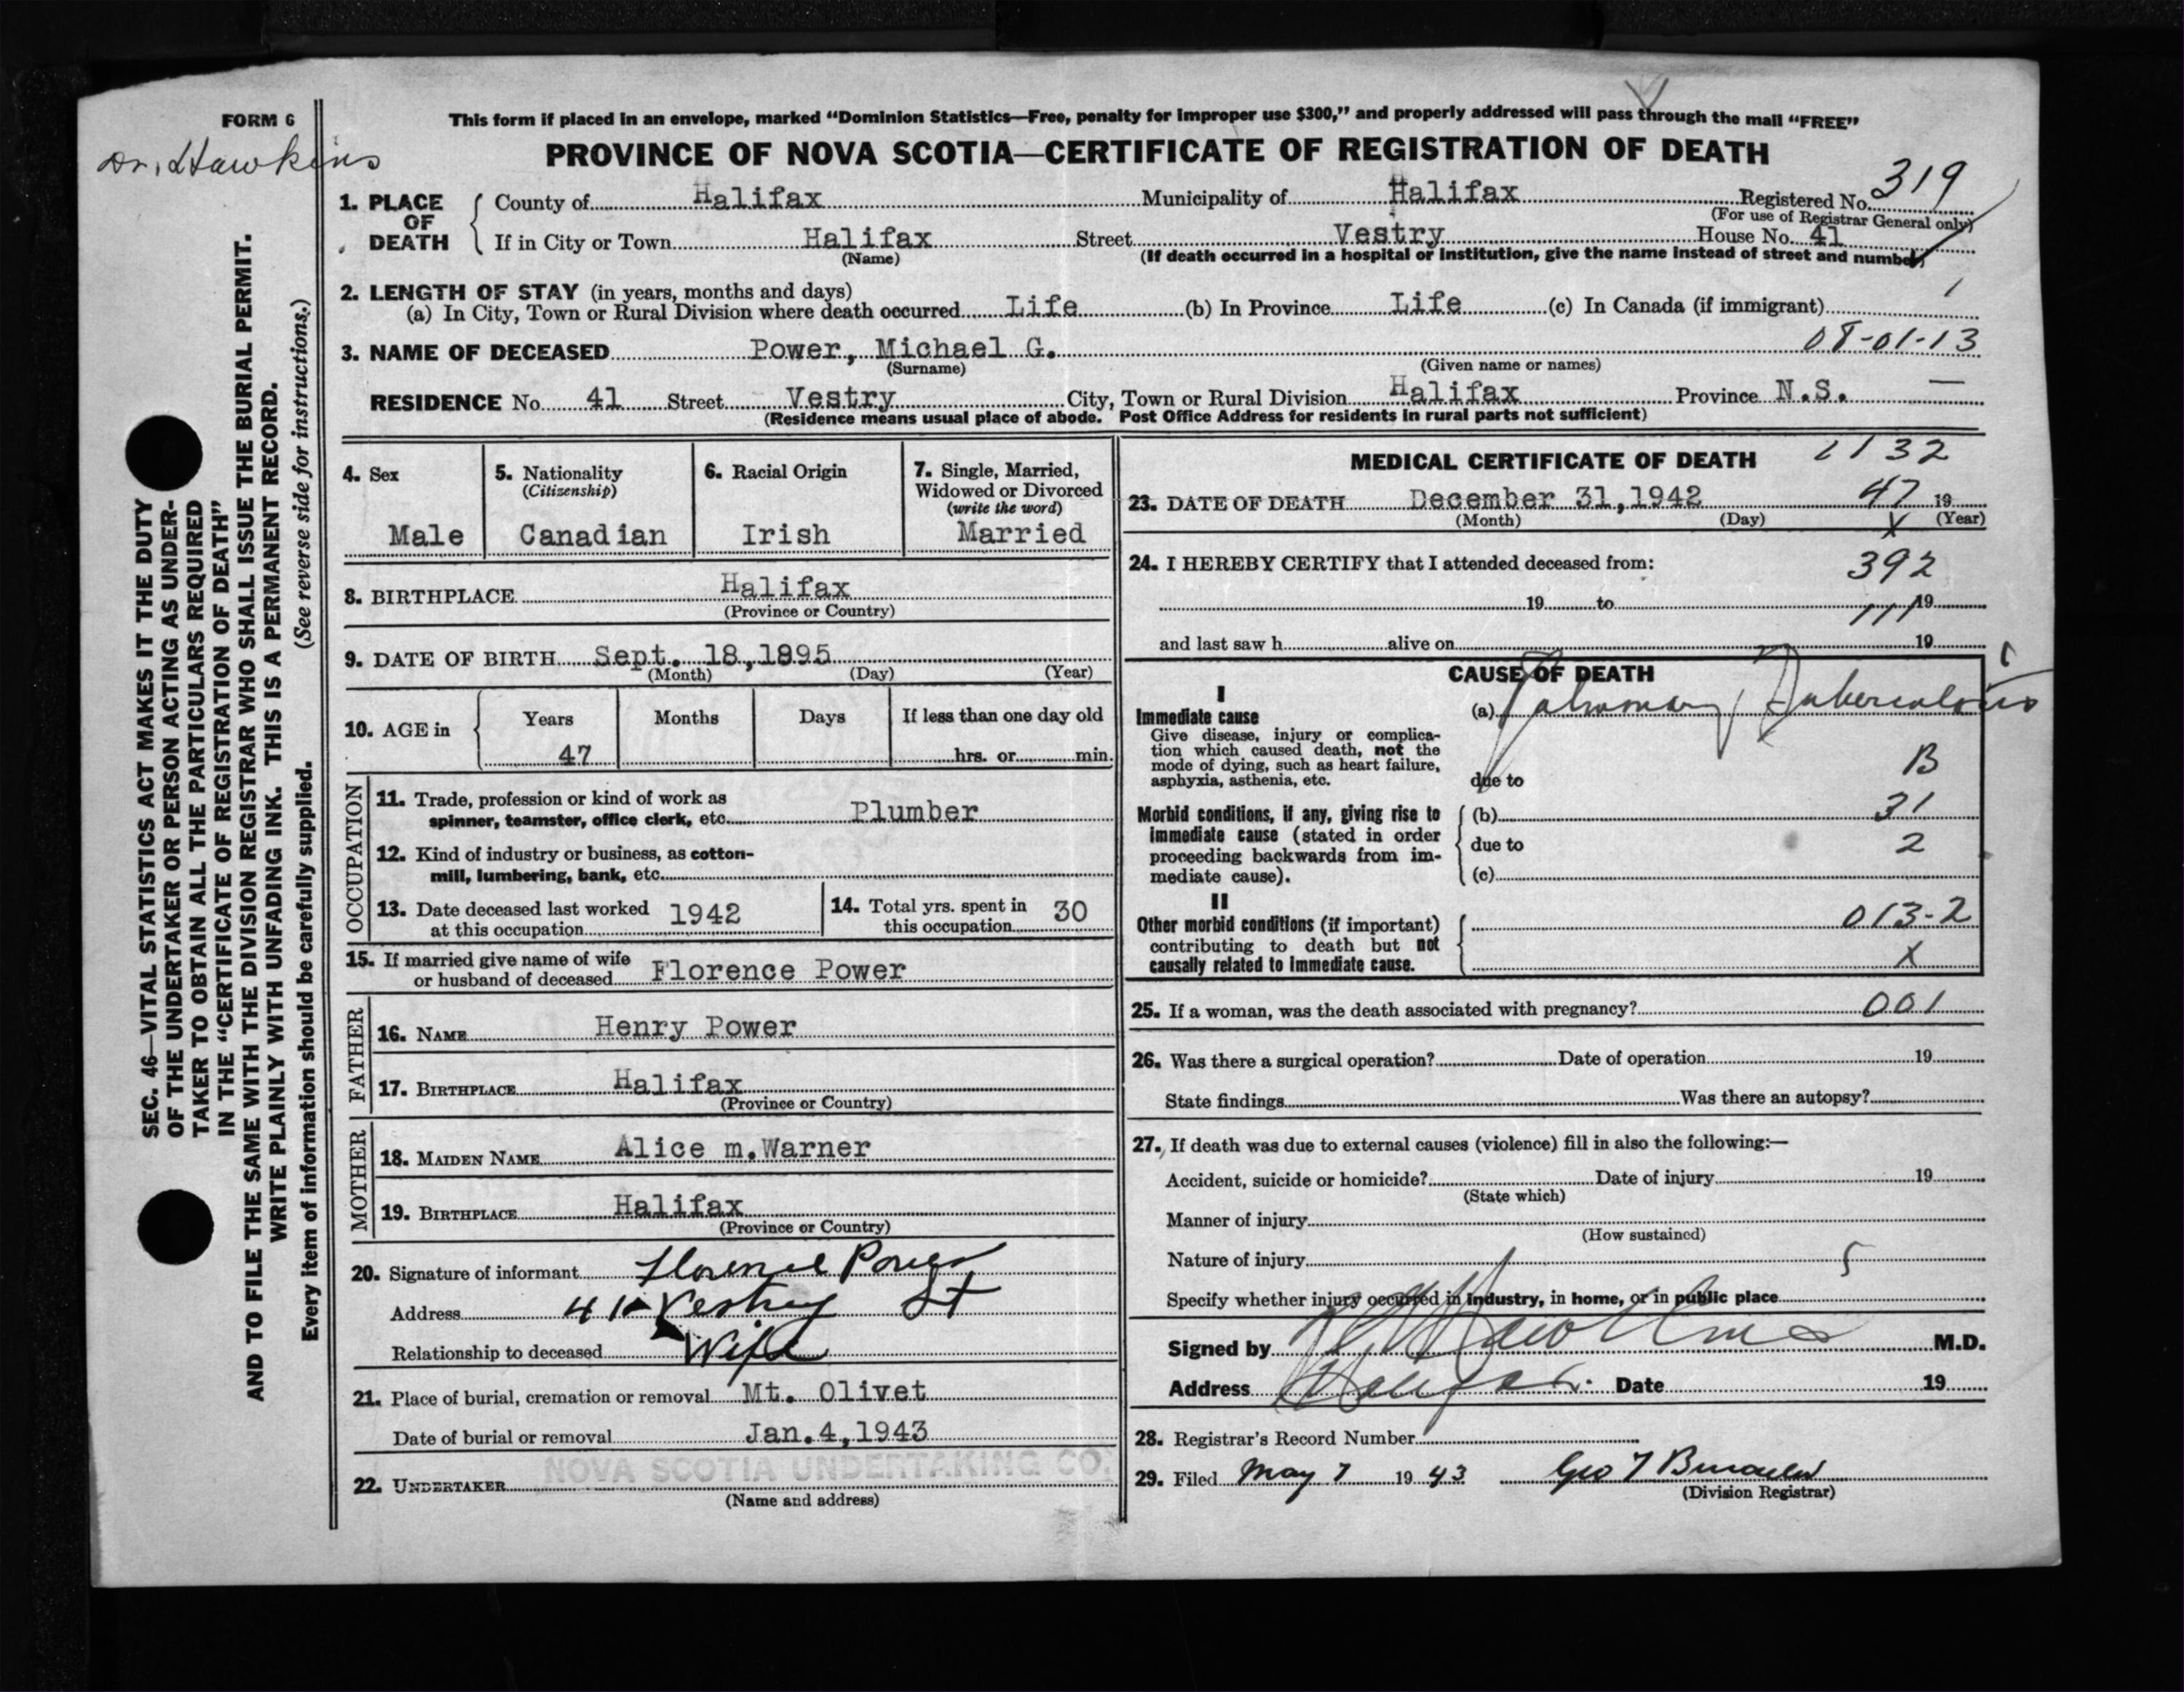 FORM 6
Dr. Hawkins
This form if placed in an envelope, marked “Dominion Statistics—Free, penalty for improper use $300,” and properly addressed will pass through the mail “FREE”
PROVINCE OF NOVA SCOTIA—CERTIFICATE OF REGISTRATION OF DEATH
1. PLACE OF DEATH County of Halifax Municipality of Halifax Registered No. 319
(For use of Registrar General only)
If in City or Town Halifax Street Vestry House No. 41
(Name) (If death occurred in a hospital or institution, give the name instead of street and number)
2. LENGTH OF STAY (in years, months and days) 1
(a) In City, Town or Rural Division where death occurred Life (b) In Province Life (c) In Canada (if immigrant)
3. NAME OF DECEASED Power, Michael G. 08-01-13
(Surname) (Given name or names)
RESIDENCE No. 41 Street Vestry City, Town or Rural Division Halifax Province N.S. —
(Residence means usual place of abode. Post Office Address for residents in rural parts not sufficient)
4. Sex
Male
5. Nationality
(Citizenship)
Canadian
6. Racial Origin
Irish
7. Single, Married,
Widowed or Divorced
(write the word)
Married
8. BIRTHPLACE Halifax
(Province or Country)
9. DATE OF BIRTH Sept. 18,1895
(Month) (Day) (Year)
10. AGE in Years Months Days If less than one day old
47 hrs. or min.
OCCUPATION
11. Trade, profession or kind of work as
spinner, teamster, office clerk, etc. Plumber
12. Kind of industry or business, as cotton-
mill, lumbering, bank, etc.
13. Date deceased last worked
at this occupation 1942
14. Total yrs. spent in
this occupation 30
15. If married give name of wife
or husband of deceased Florence Power
FATHER
16. NAME Henry Power
17. BIRTHPLACE Halifax
(Province or Country)
MOTHER
18. MAIDEN NAME Alice m.Warner
19. BIRTHPLACE Halifax
(Province or Country)
20. Signature of informant Florence Power
Address 41 Vestry St
Relationship to deceased Wife
21. Place of burial, cremation or removal Mt. Olivet
Date of burial or removal Jan.4,1943
22. UNDERTAKER NOVA SCOTIA UNDERTAKING CO.
(Name and address)
MEDICAL CERTIFICATE OF DEATH 1132
23. DATE OF DEATH December 31,1942 47 19
(Month) (Day) (Year)
X
24. I HEREBY CERTIFY that I attended deceased from: 392
19 to 19
111
and last saw h alive on 19
CAUSE OF DEATH
I
Immediate cause
Give disease, injury or complica-
tion which caused death, not the
mode of dying, such as heart failure,
asphyxia, asthenia, etc.
(a) Pulmonary Tuberculosis
B
due to
Morbid conditions, if any, giving rise to
immediate cause (stated in order
proceeding backwards from im-
mediate cause).
(b) 31
due to 2
(c)
II
Other morbid conditions (if important)
contributing to death but not
causally related to immediate cause.
013-2
X
25. If a woman, was the death associated with pregnancy? 001
26. Was there a surgical operation? Date of operation 19
State findings Was there an autopsy?
27. If death was due to external causes (violence) fill in also the following:—
Accident, suicide or homicide? Date of injury 19
(State which)
Manner of injury
(How sustained)
Nature of injury 5
Specify whether injury occurred in industry, in home, or in public place
Signed by Hawkins M.D.
Address Halifax. Date 19
28. Registrar's Record Number
29. Filed May 7 1943 Geo
(Division Registrar)
SEC. 46—VITAL STATISTICS ACT MAKES IT THE DUTY
OF THE UNDERTAKER OR PERSON ACTING AS UNDER-
TAKER TO OBTAIN ALL THE PARTICULARS REQUIRED
IN THE “CERTIFICATE OF REGISTRATION OF DEATH”
AND TO FILE THE SAME WITH THE DIVISION REGISTRAR WHO SHALL ISSUE THE BURIAL PERMIT.
WRITE PLAINLY WITH UNFADING INK. THIS IS A PERMANENT RECORD.
Every item of information should be carefully supplied. (See reverse side for instructions.)